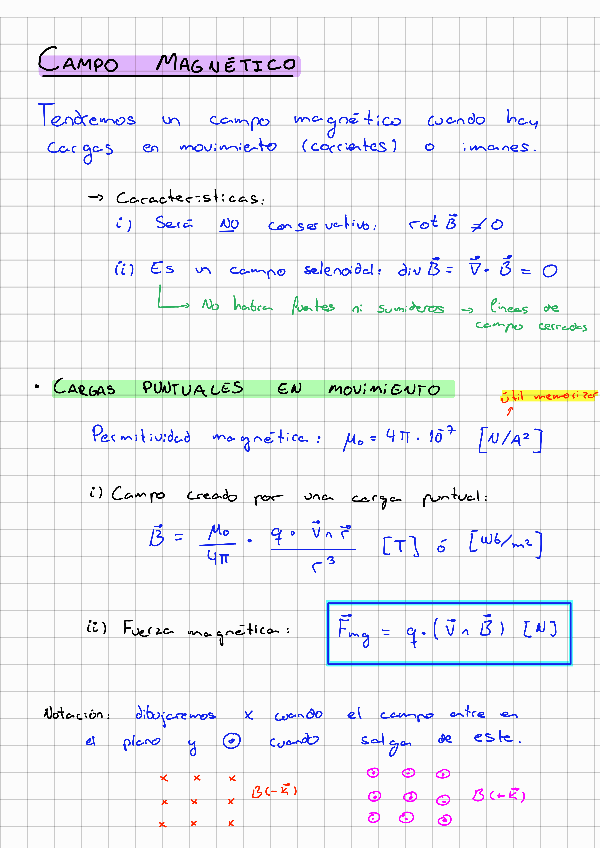 CAMPO MAGNÉTICO
Tendremos un campo magnético cuando hay
cargas en movimiento (corrientes) o imanes.
→ Características:
i) Será NO conservativo: rot B⃗ ≠ 0
ii) Es un campo selenoidal: div B⃗ = ∇⃗ · B⃗ = 0
→ No habrá fuentes ni sumideros → líneas de
campo cerradas
· CARGAS PUNTUALES EN MOVIMIENTO
útil memorizar
Permitividad magnética: μ₀ = 4π · 10⁻⁷ [N/A²]
i) Campo creado por una carga puntual:
B⃗ = μ₀/4π · q · v⃗ ∧ r⃗ / r³ [T] ó [Wb/m²]
ii) Fuerza magnética: F⃗mg = q · (v⃗ ∧ B⃗) [N]
Notación: dibujaremos x cuando el campo entre en
el plano y ⊙ cuando salga de este.
x x x ⊙ ⊙ ⊙
x x x B(-k⃗) ⊙ ⊙ ⊙ B(+k⃗)
x x x ⊙ ⊙ ⊙